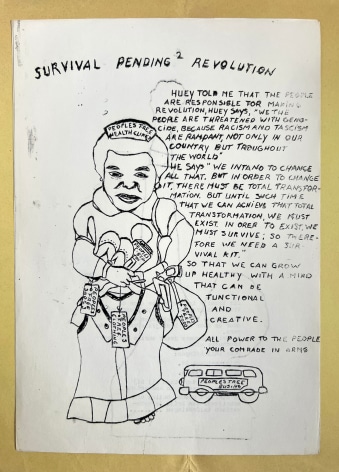 SURVIVAL PENDING 2 REVOLUTION
HUEY TOLD ME THAT THE PEOPLE
ARE RESPONSIBLE FOR MAKING
REVOLUTION, HUEY SAYS, "WE THE
PEOPLE ARE THREATENED WITH GENO-
CIDE, BECAUSE RACISM AND FASCISM
ARE RAMPANT, NOT ONLY IN OUR
COUNTRY BUT THROUGHOUT
THE WORLD"
HE SAYS "WE INTAND TO CHANGE
ALL THAT. BUT IN ORDER TO CHANGE
IT, THERE MUST BE TOTAL TRANSFOR-
MATION. BUT UNTIL SUCH TIME
THAT WE CAN ACHIEVE THAT TOTAL
TRANSFORMATION, WE MUST
EXIST. IN ORER TO EXIST, WE
MUST SURVIVE; SO THERE-
FORE WE NEED A SUR-
VIVAL KIT."
SO THAT WE CAN GROW
UP HEALTHY WITH A MIND
THAT CAN BE
FUNCTIONAL
AND
CREATIVE.
ALL POWER TO THE PEOPLE
YOUR COMRADE IN ARMS
PEOPLES FREE
HEALTH CLINIC
PEOPLES
FREE
CLOTHING
PEOPLES FREE
BUSING